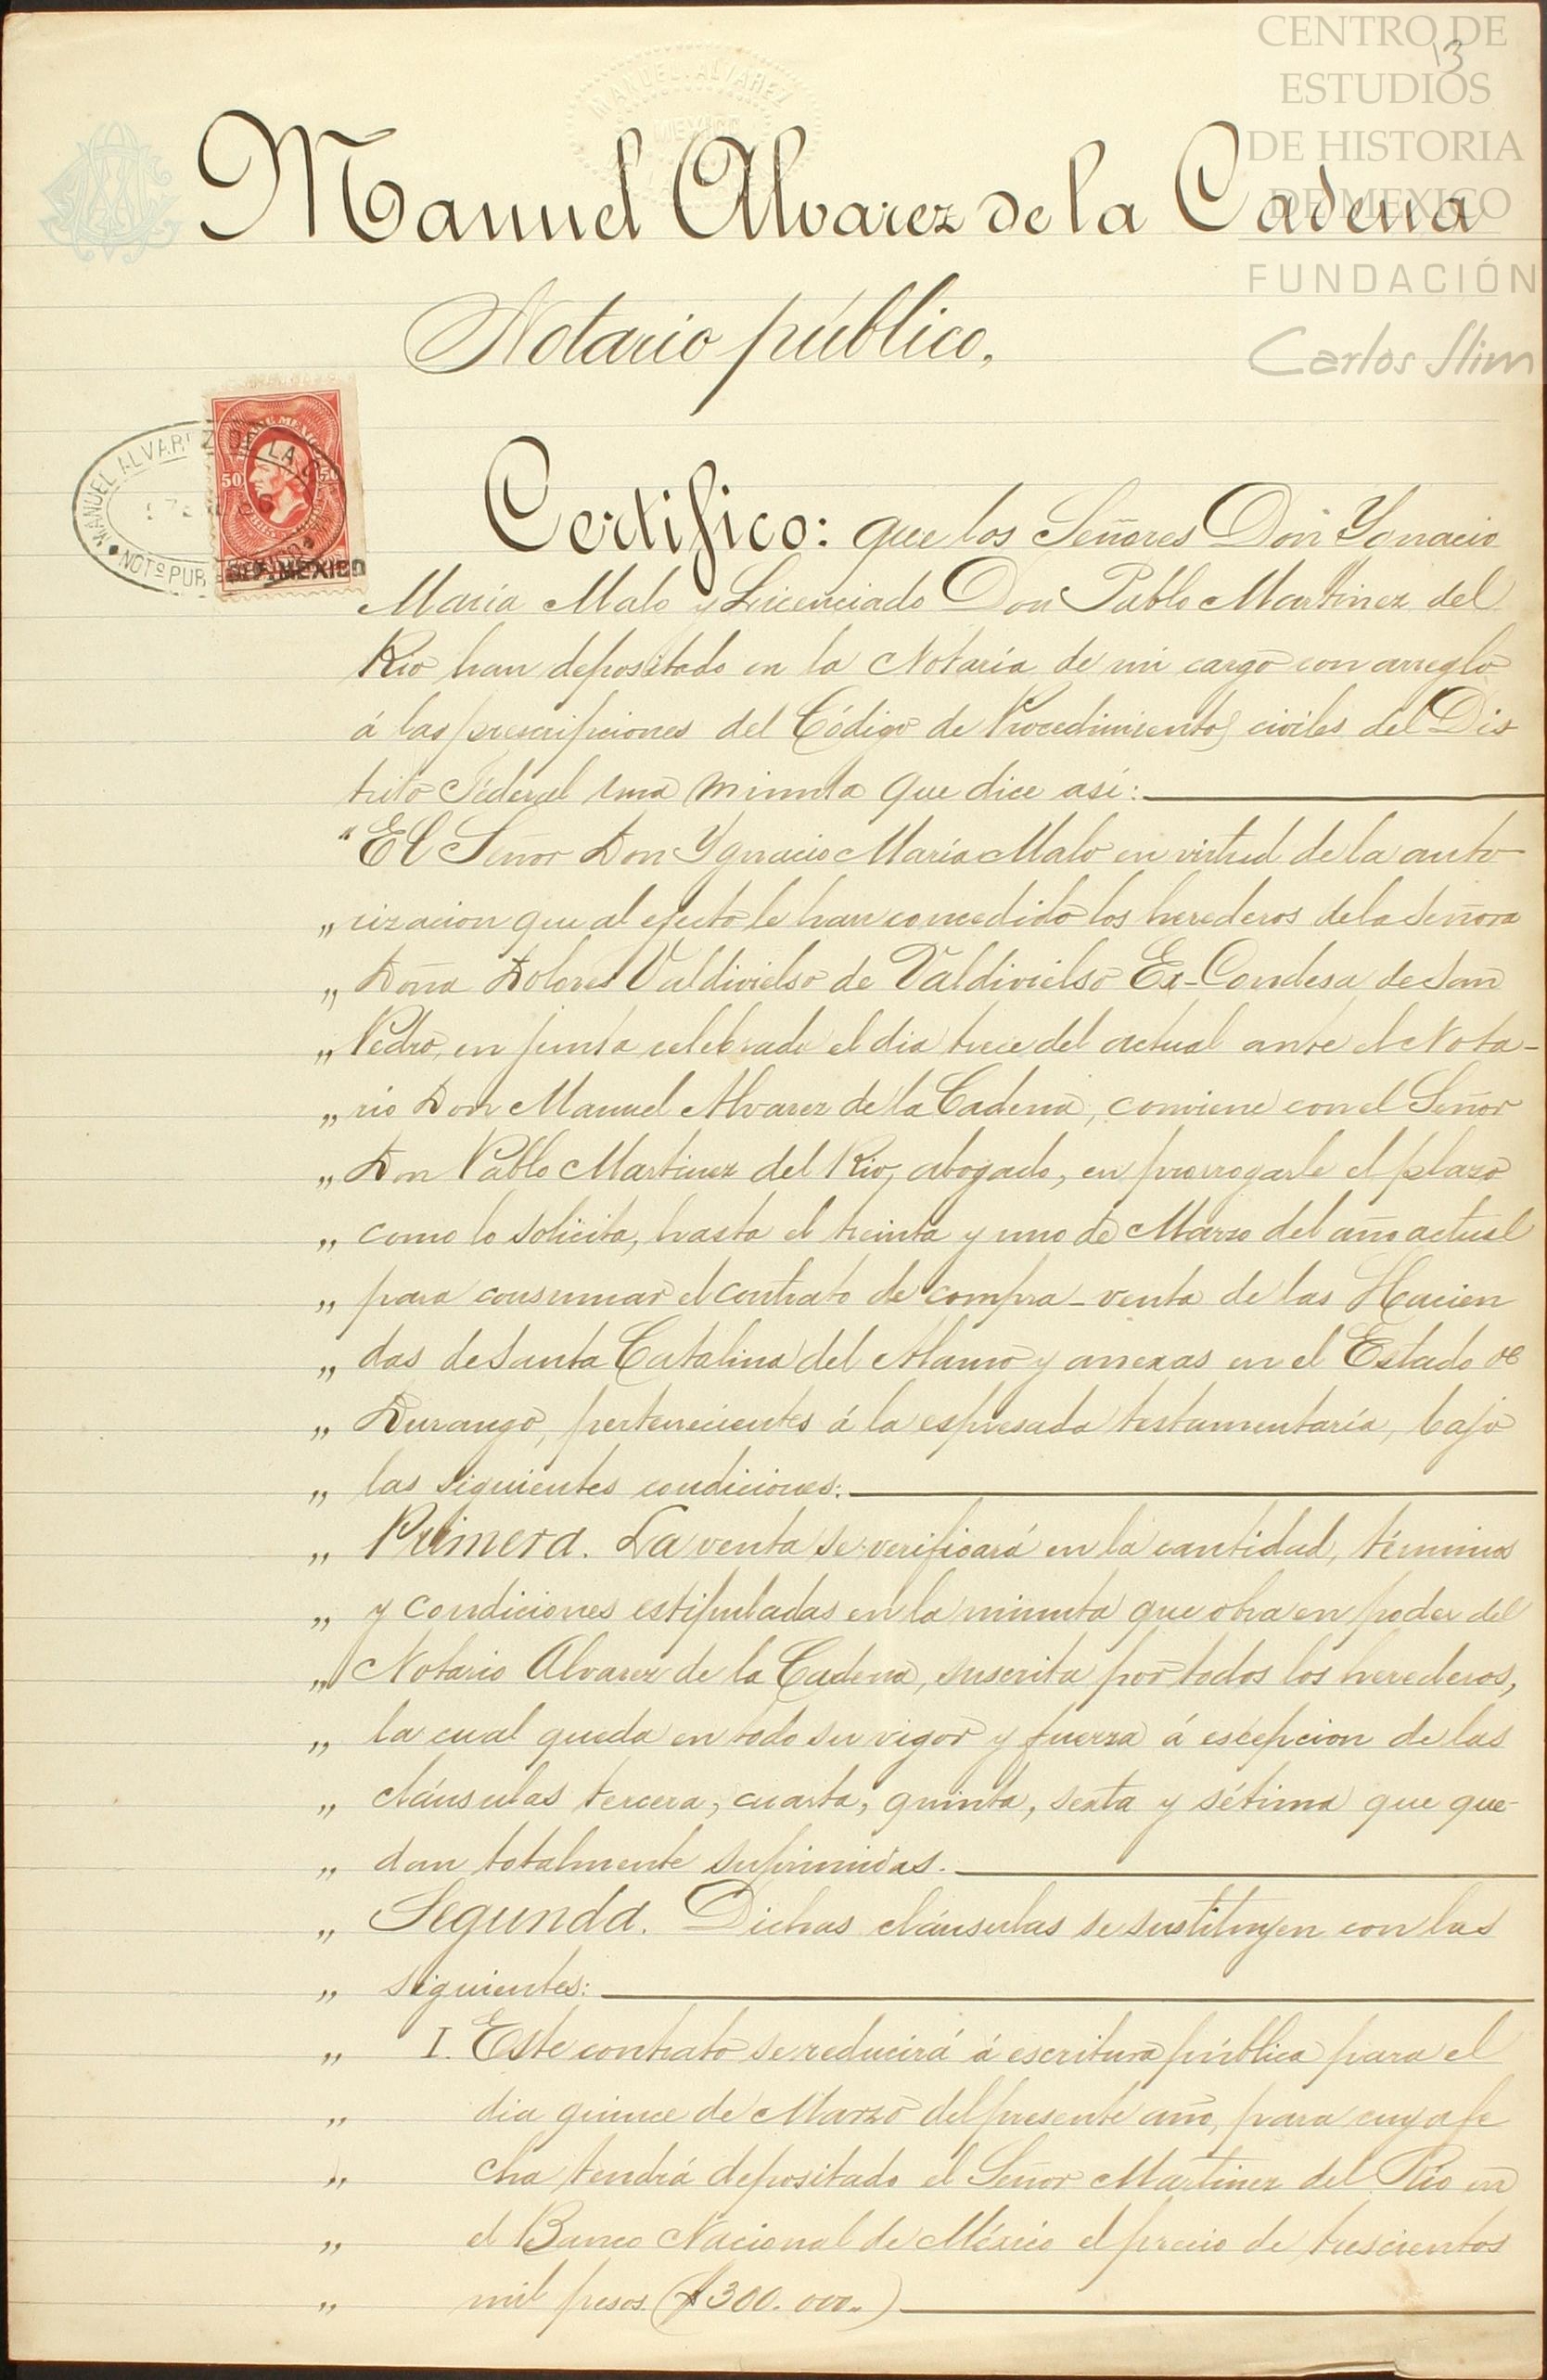 CENTRO DE
ESTUDIOS
DE HISTORIA
DE MEXICO
FUNDACIÓN
Carlos Slim
13
MANUEL ALVAREZ
MEXICO
Manuel Alvarez de la Cadena
Notario público,
MANUEL ALVAREZ DE LA
NOTº PUB
50 50
MEXICO
Certifico: que los Señores Don Ygnacio
María Malo y Licenciado Don Pablo Martinez del
Rio han depositado en la Notaría de mi cargo con arreglo
á las prescripciones del Código de Procedimientos civiles del Dis
trito Federal una minuta que dice así:
"El Señor Don Ygnacio María Malo en virtud de la auto-
„ rizacion que al efecto le han concedido los herederos de la Señora
„ Doña Dolores Valdivielso de Valdivielso Ex-Condesa de San
„ Pedro, en junta celebrada el dia trece del actual ante el Nota-
„ rio Don Manuel Alvarez de la Cadena, conviene con el Señor
„ Don Pablo Martinez del Rio, abogado, en prorrogarle el plazo
„ como lo solicita, hasta el treinta y uno de Marzo del año actual
„ para consumar el contrato de compra-venta de las Hacien
„ das de Santa Catalina del Alamo y anexas en el Estado de
„ Durango, pertenecientes á la espresada testamentaría, bajo
„ las siguientes condiciones:
„ Primera. La venta se verificará en la cantidad, términos
„ y condiciones estipuladas en la minuta que obra en poder del
„ Notario Alvarez de la Cadena, suscrita por todos los herederos,
„ la cual queda en todo su vigor y fuerza á escepcion de las
„ cláusulas tercera, cuarta, quinta, sexta y sétima que que-
„ dan totalmente suprimidas.
„ Segunda. Dichas cláusulas se sustituyen con las
„ siguientes:
„ I. Este contrato se reducirá á escritura pública para el
„ dia quince de Marzo del presente año, para cuya fe
„ cha tendrá depositado el Señor Martinez del Rio en
„ el Banco Nacional de México el precio de trescientos
„ mil pesos. ($300.000.)